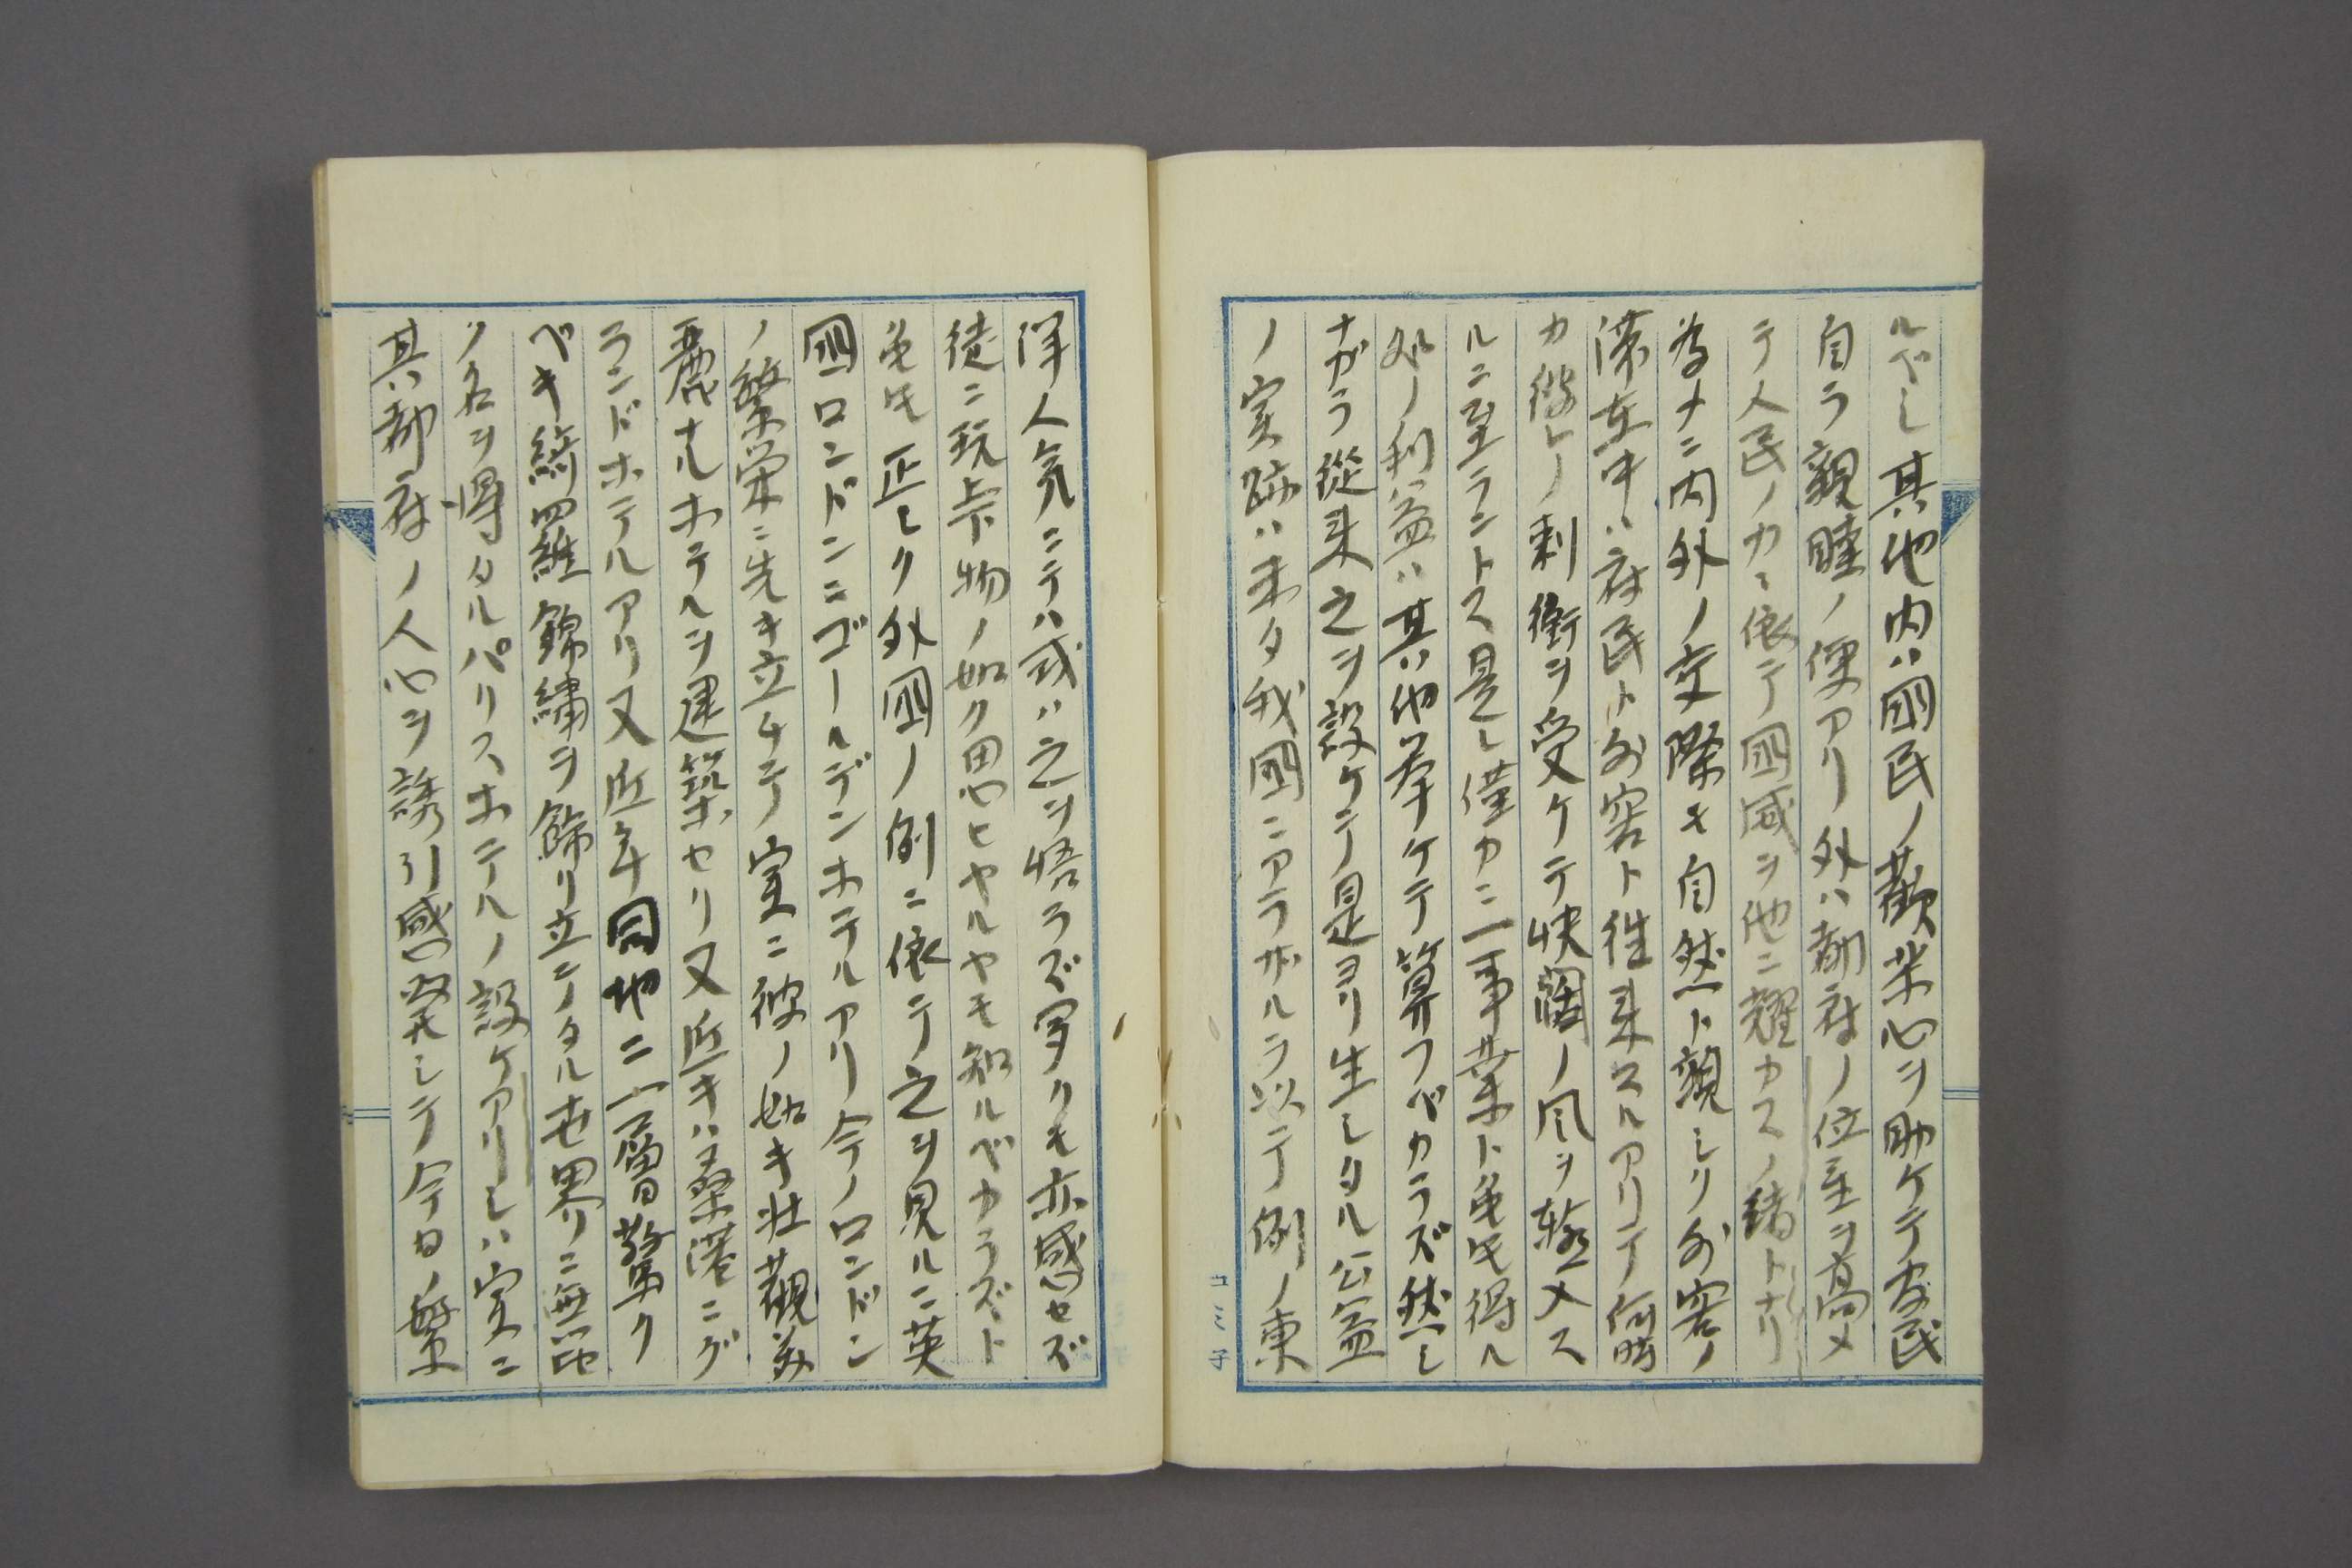 ルベシ其他内ハ国民ノ歓業心ヲ助ケテ府民
自ラ親睦ノ便アリ外ハ都府ノ位至ヲ高メ
テ人民ノカニ依テ国威ヲ他ニ耀カスノ緒トナリ
為メニ内外ノ交際モ自然ト親シク外客ノ
滞在中ハ府民ト外客ト往来スルアリテ何時
カ彼レノ刺衝ヲ受ケテ快闊ノ風ヲ極メス
ルニ至ラントス是レ僅カニ一事業ト雖モ得ル
処ノ利益ハ其他挙ケテ算フベカラズ然シ
ナガラ従来之ヲ設ケテ是ヨリ生シタル公益
ノ実跡ハ未タ我国ニアラザルヲ以テ例ノ東
洋人気ニテハ或ハ之ヲ悟ラズ聞クモ亦感セズ
徒ニ玩弄物ノ如ク思ヒヤルヤモ知ルベカラズト
雖モ正シク外国ノ例ニ依テ之ヲ見ルニ英
国ロンドンニゴールデンホテルアリ今ノロンドン
ノ繁栄ニ先キ立チテ実ニ彼ノ如キ壮観美
麗ナルホテルヲ建築セリ又近キハ桑港ニグ
ランドホテルアリ又近年同地ニ一層驚ク
ベキ綺羅錦繍ヲ飾リ立テタル世界ニ無比
ノ名ヲ得タルパリスホテルノ設ケアリシハ実ニ
其都府ノ人心ヲ誘引感発シテ今日ノ繁
コミ子